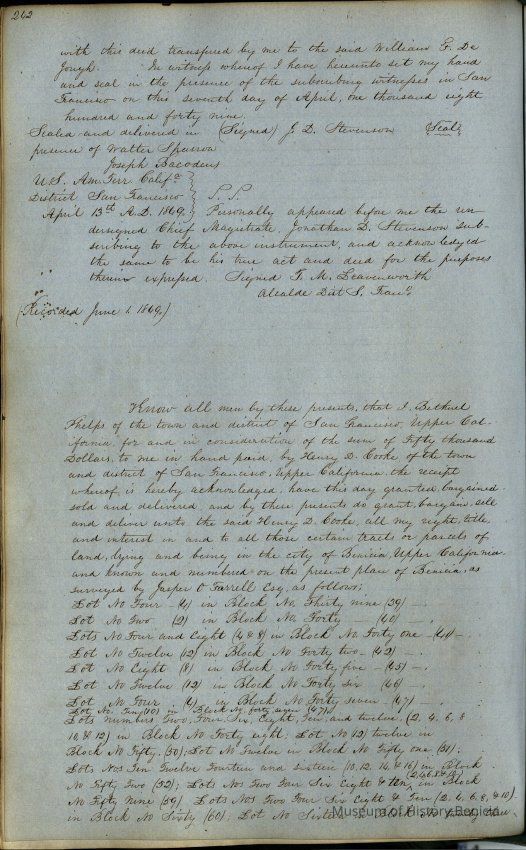 262
with this deed transfered by me to the said William F. De
Jough. In witness whereof I have hereunto set my hand
and seal in the presence of the subscribing witnesses in San
Francisco on this seventh day of April, one thousand eight
hundred and forty nine.
Sealed and delivered in (Signed) J. D. Stevenson (Seal)
presence of Walter Sparrow
Joseph
U.S. Am. Terr Calif.a
District San Francisco S. S.
April 13th A.D. 1849. Personally appeared before me the un-
designed Chief Magistrate, Jonathan D. Stevenson sub-
scribing to the above instrument, and acknowledged
the same to be his true act and deed for the purposes
therein expressed. Signed T. M. Leavenworth
Alcalde Dist S. Fran.o
(Recorded June 1. 1849.)
Know all men by these presents, that I, Bethuel
Phelps of the town and district of San Francisco, Upper Cal-
ifornia, for and in consideration of the sum of Fifty thousand
Dollars, to me in hand paid, by Henry D. Cooke of the town
and district of San Francisco, Upper California, the receipt
whereof, is hereby acknowledged, have this day granted, bargained
sold and delivered, and by these presents do grant, bargain, sell
and deliver unto the said Henry D. Cooke, all my right, title,
and interest in and to all those certain tracts or parcels of
land, lying and being in the city of Benicia Upper California
and known and numbered on the present place of Benicia, as
surveyed by Jasper O Farrell Esq, as follows;
Lot No Four (4) in Block No. Thirty nine (39) -.
Lot No Two (2) in Block No. Forty - (40) -.
Lots No Four and Eight (4 & 8) in Block No. Forty one - (41) -.
Lot No Twelve (12) in Block No Forty two - (42) -.
Lot No Eight (8) in Block No Forty five - (45) -.
Lot No Twelve (12) in Block No Forty six (46) -.
Lot No Four (4) in Block No Forty seven (47) -.
Lot No. Ten (10) in Block No. forty seven (47)
Lots numbers Two, Four, Six, Eight, Ten, and twelve, (2, 4, 6, 8
10, & 12) in Block No Forty eight; Lot No (12) twelve in
Block No Fifty, (50); Lot No Twelve in Block No Fifty one (51).
Lots Nos Ten Twelve Fourteen and sixteen (10, 12, 14, & 16) in Block
No Fifty Two (52); Lots Nos Two Four Six Eight & ten (2,4,6,8 & 10) in Block
No Fifty Nine (59) Lots Nos Two Four Six Eight & Ten (2, 4, 6, 8, & 10)
in Block No Sixty (60); Lot No Sixteen Block No
Museum of History Benicia